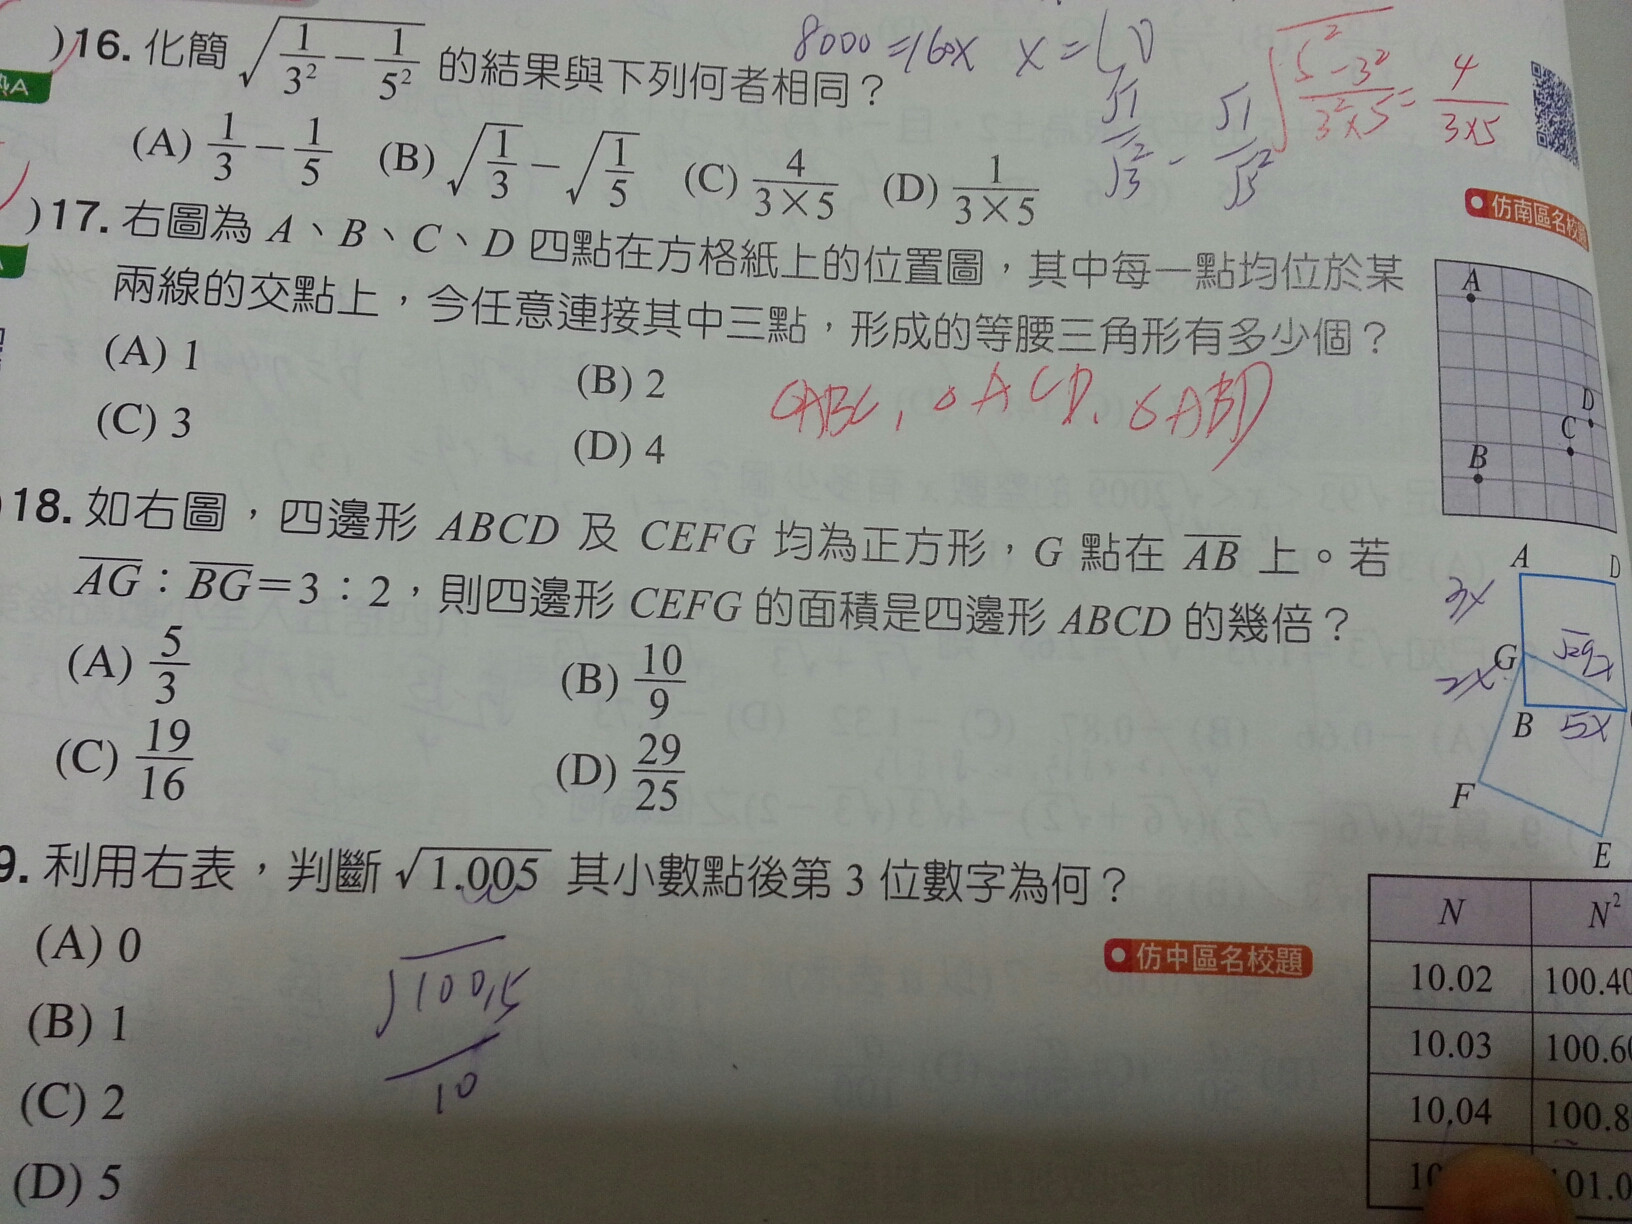 )16. 化簡 √(1/3² − 1/5²) 的結果與下列何者相同？
8000=160x x=50
√(5²−3²/3²×5²)= 4/3×5
(A) 1/3 − 1/5 (B) √(1/3) − √(1/5) (C) 4/(3×5) (D) 1/(3×5)
√1/√3² − √1/√5²
仿南區名校題
)17. 右圖為 A、B、C、D 四點在方格紙上的位置圖，其中每一點均位於某
兩線的交點上，今任意連接其中三點，形成的等腰三角形有多少個？
(A) 1
(B) 2
(C) 3
(D) 4
△ABC, △ACD, △ABD
A
D
C
B
)18. 如右圖，四邊形 ABCD 及 CEFG 均為正方形，G 點在 AB 上。若
AG：BG=3：2，則四邊形 CEFG 的面積是四邊形 ABCD 的幾倍？
(A) 5/3
(B) 10/9
(C) 19/16
(D) 29/25
A
D
3x
G
√29x
2x
B
5x
F
E
9. 利用右表，判斷 √1.005 其小數點後第 3 位數字為何？
(A) 0
(B) 1
(C) 2
(D) 5
√100.5
10
仿中區名校題
N N²
10.02 100.40
10.03 100.60
10.04 100.8
10 101.0